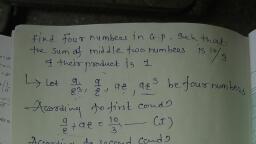 Find four numbers in G.P. such that
the sum of middle two numbers is 10/3
& their product is 1
↳ Let a/r³, a/r, ar, ar³ be four numbers
→ According to first condⁿ
a/r + ar = 10/3 — (I)
According to second condⁿ